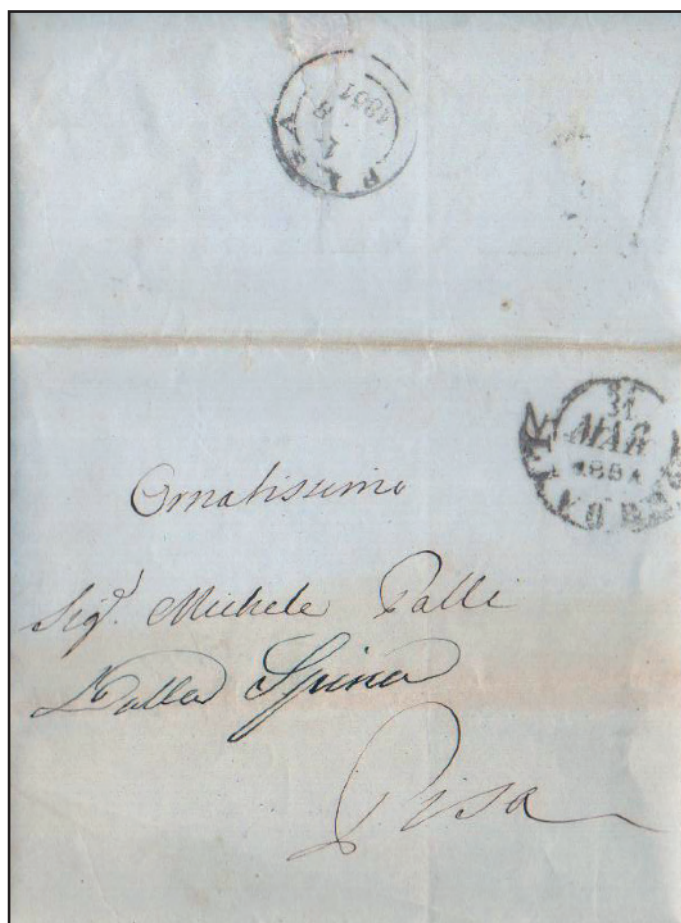 PISA
1851
31
MAR
1851
LIVORNO
Ornatissimo
Sigr. Michele Palli
Dalla Spina
Pisa